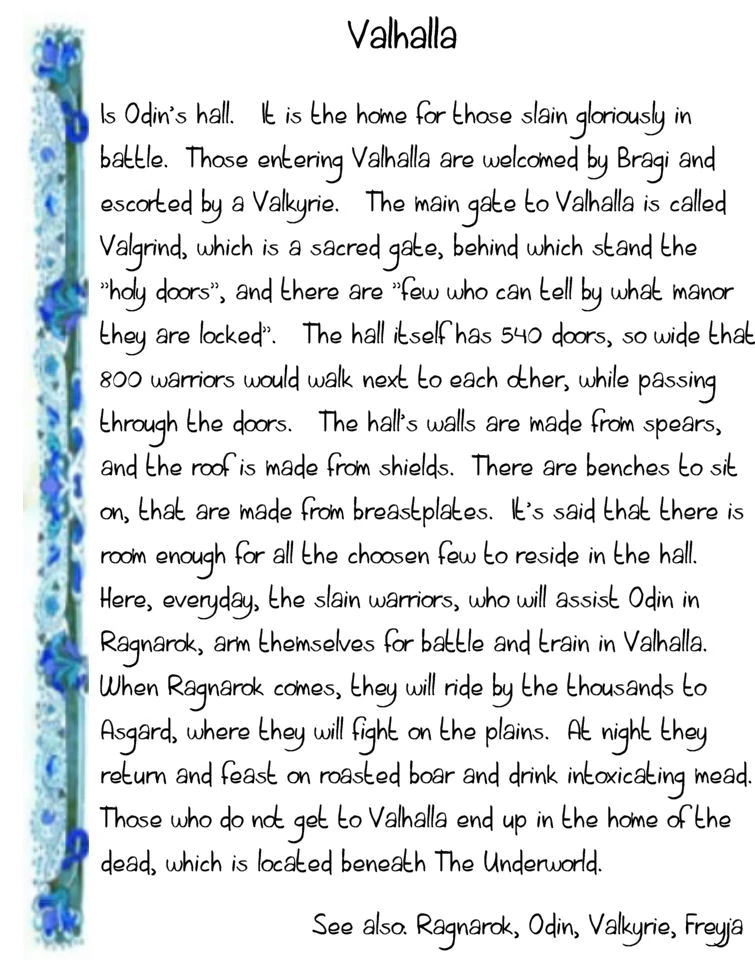 Valhalla
Is Odin's hall. It is the home for those slain gloriously in
battle. Those entering Valhalla are welcomed by Bragi and
escorted by a Valkyrie. The main gate to Valhalla is called
Valgrind, which is a sacred gate, behind which stand the
"holy doors", and there are "few who can tell by what manor
they are locked". The hall itself has 540 doors, so wide that
800 warriors would walk next to each other, while passing
through the doors. The hall's walls are made from spears,
and the roof is made from shields. There are benches to sit
on, that are made from breastplates. It's said that there is
room enough for all the choosen few to reside in the hall.
Here, everyday, the slain warriors, who will assist Odin in
Ragnarok, arm themselves for battle and train in Valhalla.
When Ragnarok comes, they will ride by the thousands to
Asgard, where they will fight on the plains. At night they
return and feast on roasted boar and drink intoxicating mead.
Those who do not get to Valhalla end up in the home of the
dead, which is located beneath The Underworld.
See also: Ragnarok, Odin, Valkyrie, Freyja